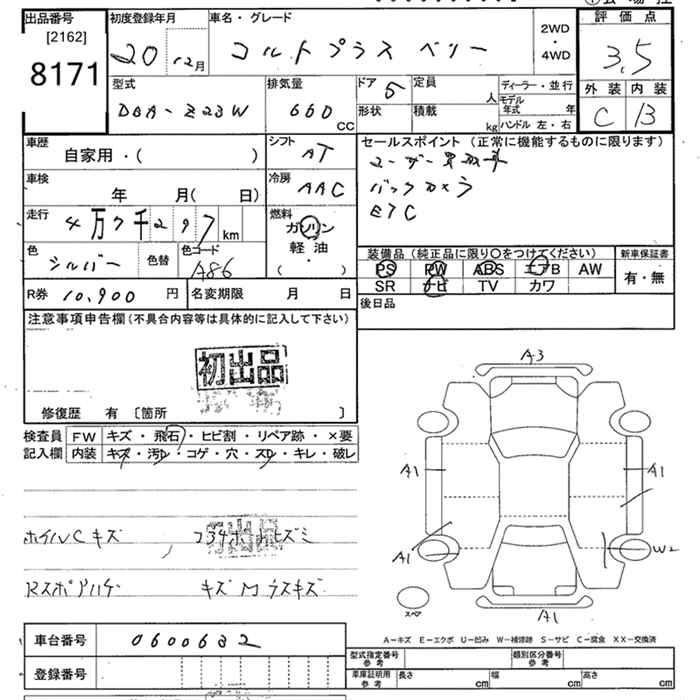 出品番号
[2162]
8171
初度登録年月
20 12月
車名・グレード
コルトプラス ベリー
2WD
・
4WD
評価点
3.5
外装 内装
C B
型式
DBA-Z23W
排気量
660 CC
ドア 5
形状
定員 人
積載 kg
ディーラー・並行
モデル年式 年
ハンドル 左・右
車歴
自家用・( )
シフト
AT
車検
年 月( 日)
冷房
AAC
走行
4万7千297 km
燃料
ガソリン
軽油
( ・ )
色
シルバー
色替
色コード
A86
R券 10,900 円
名変期限 月 日
セールスポイント (正常に機能するものに限ります)
ユーザー買取車
バックカメラ
ETC
装備品 (純正品に限り○をつけてください)
PS PW ABS エアB AW
SR ナビ TV カワ
新車保証書
有・無
後日品
注意事項申告欄(不具合内容等は具体的に記入して下さい)
初出品
修復歴 有 〔箇所 〕
検査員
記入欄
FW キズ・飛石・ヒビ割・リペア跡・×要
内装 キズ・汚レ・コゲ・穴・スレ・キレ・破レ
ホイルCキズ
初出品
キズ
A3
A1
A1
A1
W2
A1
スペア
A-キズ E-エクボ U-凹み W-補修跡 S-サビ C-腐食 XX-交換済
車台番号 0600632
登録番号
型式指定番号
参考
類別区分番号
参考
車庫証明用
参考
長さ cm 幅 cm 高さ cm